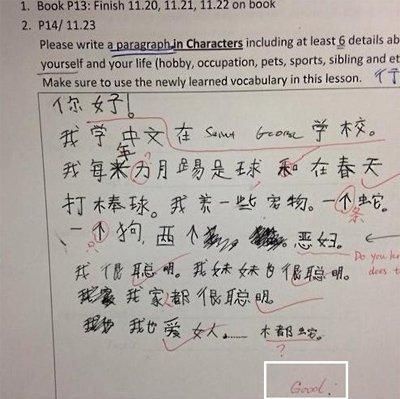 1. Book P13: Finish 11.20, 11.21, 11.22 on book
2. P14/ 11.23
Please write a paragraph in Characters including at least 6 details ab
yourself and your life (hobby, occupation, pets, sports, sibling and et
Make sure to use the newly learned vocabulary in this lesson.
你好!
我学中文在 Saint George 学校。
我每年 月踢足球和在春天
打棒球。我养一些宠物。一个蛇。 条
一个狗, 两个 。恶妇。
Do you
does t
我很聪明。我妹妹也很聪明。
我家都很聪明。
我也爱女人……木都蛇。
?
Good: